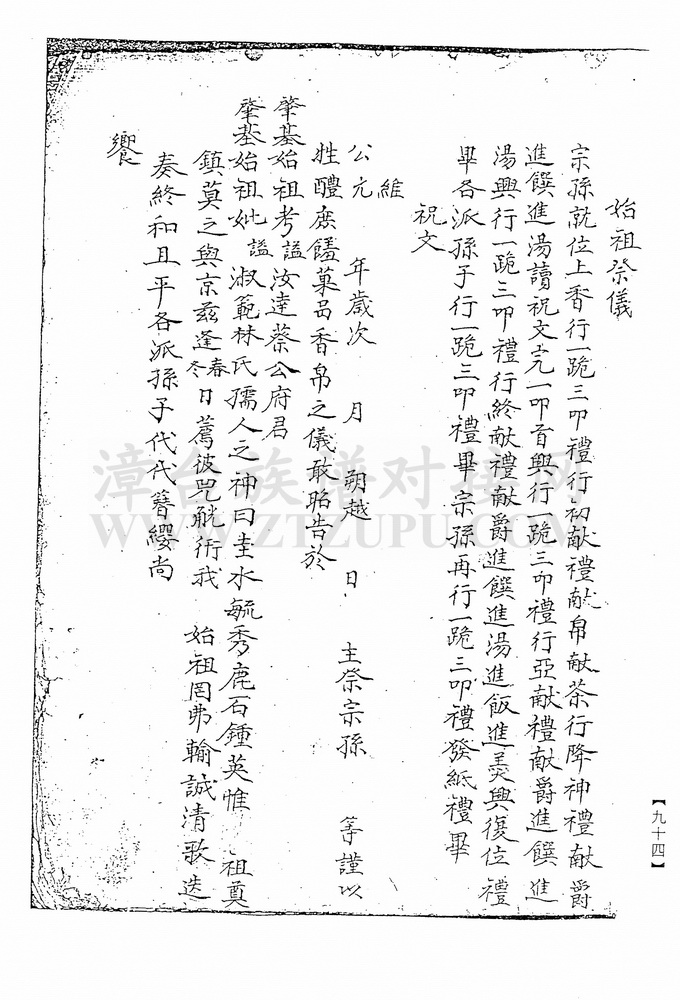 始祖祭儀
宗孫就位上香行一跪三叩禮行初献禮献帛献茶行降神禮献爵
進饌進湯讀祝文完一叩首興行一跪三叩禮行亞献禮献爵進饌進
湯興行一跪三叩禮行終献禮献爵進饌進湯進飯進羹興復位禮
畢各派孫子行一跪三叩禮畢宗孫再行一跪三叩禮發紙禮畢
祝文
維
公元 年歲次 月 朔越 日 主祭宗孫 等謹以
牲醴庶饈菓品香帛之儀敢昭告於
肇基始祖考謚汝達蔡公府君
肇基始祖妣謚淑範林氏孺人之神曰圭水毓秀鹿石鍾英惟 祖奠
鎮莫之與京兹逢春冬日薦彼兕觥衎我 始祖罔弗輸誠清歌迭
奏終和且平各派孫子代代簪纓尚
饗
【九十四】
漳台族譜对接网
WWW.ZTZUPU.COM